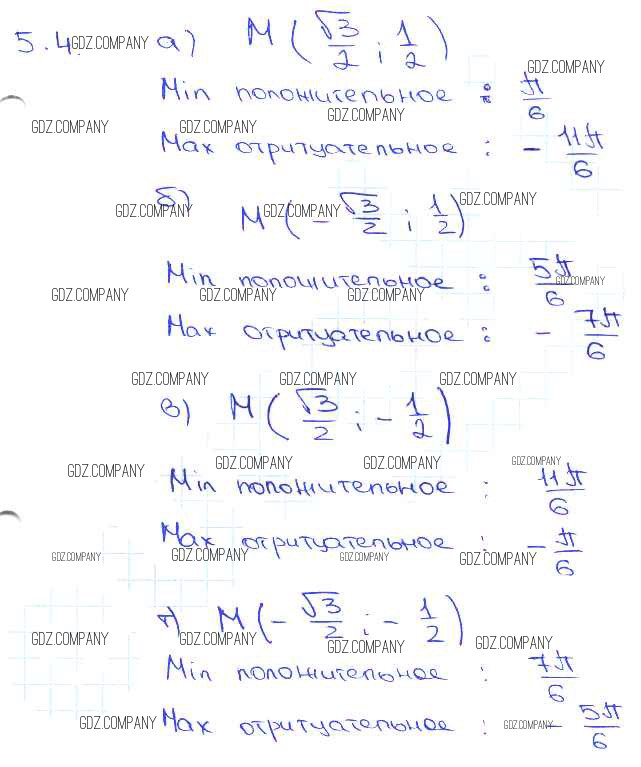 5.4. GDZ.COMPANY а) M (√3/2 ; 1/2)
GDZ.COMPANY
Min положительное : π/6
GDZ.COMPANY GDZ.COMPANY GDZ.COMPANY
Max отритуательное : - 11π/6
б) GDZ.COMPANY M GDZ.COMPANY (-√3/2 ; 1/2) GDZ.COMPANY
Min положительное : 5π/6 GDZ.COMPANY
GDZ.COMPANY GDZ.COMPANY GDZ.COMPANY
Max отритуательное : - 7π/6
GDZ.COMPANY GDZ.COMPANY GDZ.COMPANY
в) M (√3/2 ; -1/2)
GDZ.COMPANY GDZ.COMPANY GDZ.COMPANY GDZ.COMPANY
Min положительное : 11π/6
Max отритуательное : - π/6
GDZ.COMPANY GDZ.COMPANY GDZ.COMPANY GDZ.COMPANY
г) M (-√3/2 ; -1/2)
GDZ.COMPANY GDZ.COMPANY GDZ.COMPANY GDZ.COMPANY
Min положительное : 7π/6
GDZ.COMPANY Max отритуательное : GDZ.COMPANY - 5π/6